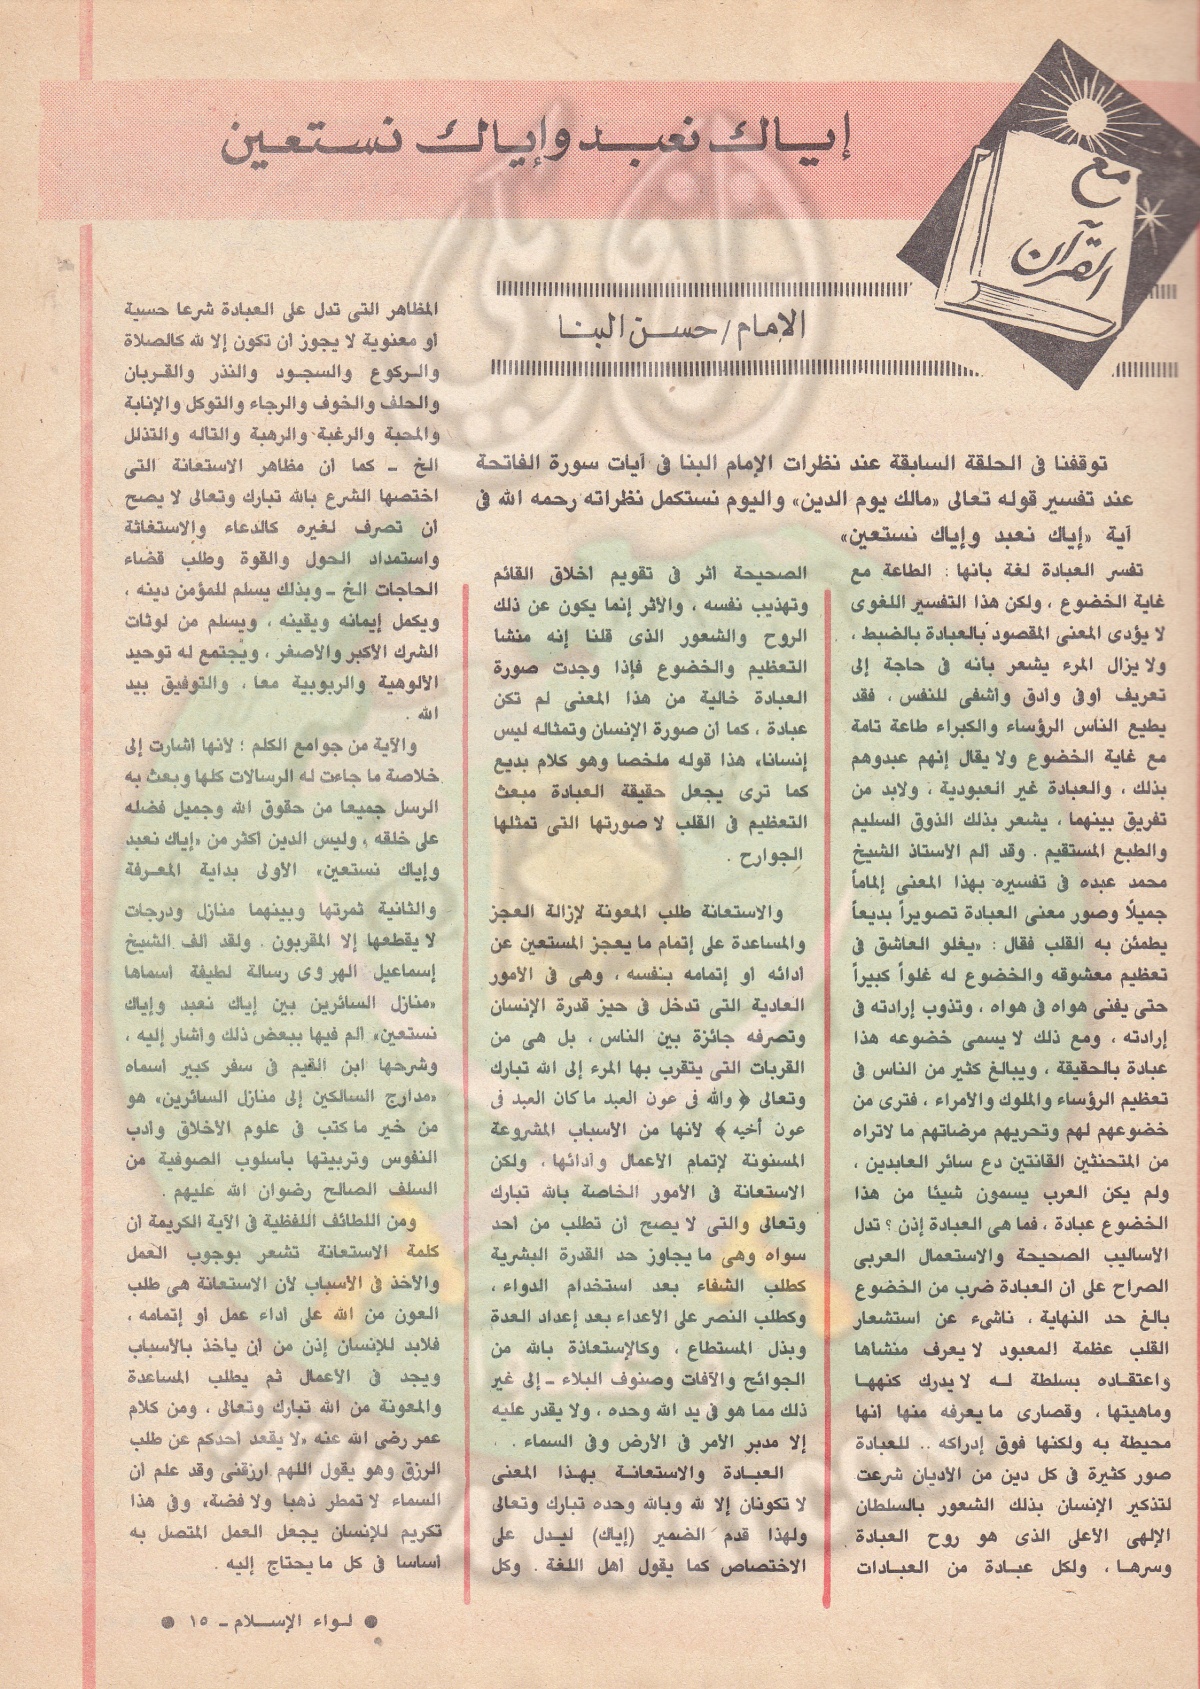 مع
القرآن
إياك نعبد وإياك نستعين
الإمام/حسن البنا
توقفنا فى الحلقة السابقة عند نظرات الإمام البنا فى آيات سورة الفاتحة
عند تفسير قوله تعالى «مالك يوم الدين» واليوم نستكمل نظراته رحمه الله فى
آية «إياك نعبد وإياك نستعين»
تفسر العبادة لغة بانها : الطاعة مع
غاية الخضوع ، ولكن هذا التفسير اللغوى
لا يؤدى المعنى المقصود بالعبادة بالضبط ،
ولا يزال المرء يشعر بانه فى حاجة إلى
تعريف اوفى وادق واشفى للنفس ، فقد
يطيع الناس الرؤساء والكبراء طاعة تامة
مع غاية الخضوع ولا يقال إنهم عبدوهم
بذلك ، والعبادة غير العبودية ، ولابد من
تفريق بينهما ، يشعر بذلك الذوق السليم
والطبع المستقيم . وقد ألم الاستاذ الشيخ
محمد عبده فى تفسيره بهذا المعنى إلماماً
جميلاً وصور معنى العبادة تصويراً بديعاً
يطمئن به القلب فقال : «يغلو العاشق فى
تعظيم معشوقه والخضوع له غلواً كبيراً
حتى يفنى هواه فى هواه ، وتذوب إرادته فى
إرادته ، ومع ذلك لا يسمى خضوعه هذا
عبادة بالحقيقة ، ويبالغ كثير من الناس فى
تعظيم الرؤساء والملوك والأمراء ، فترى من
خضوعهم لهم وتحريهم مرضاتهم ما لاتراه
من المتحنثين القانتين دع سائر العابدين ،
ولم يكن العرب يسمون شيئا من هذا
الخضوع عبادة ، فما هى العبادة إذن ؟ تدل
الأساليب الصحيحة والاستعمال العربى
الصراح على ان العبادة ضرب من الخضوع
بالغ حد النهاية ، ناشىء عن استشعار
القلب عظمة المعبود لا يعرف منشاها
واعتقاده بسلطة له لا يدرك كنهها
وماهيتها ، وقصارى ما يعرفه منها انها
محيطة به ولكنها فوق إدراكه .. للعبادة
صور كثيرة فى كل دين من الأديان شرعت
لتذكير الإنسان بذلك الشعور بالسلطان
الإلهى الأعلى الذى هو روح العبادة
وسرها ، ولكل عبادة من العبادات
الصحيحة اثر فى تقويم اخلاق القائم
وتهذيب نفسه ، والأثر إنما يكون عن ذلك
الروح والشعور الذى قلنا إنه منشا
التعظيم والخضوع فإذا وجدت صورة
العبادة خالية من هذا المعنى لم تكن
عبادة ، كما ان صورة الإنسان وتمثاله ليس
إنسانا» هذا قوله ملخصا وهو كلام بديع
كما ترى يجعل حقيقة العبادة مبعث
التعظيم فى القلب لا صورتها التى تمثلها
الجوارح .
والاستعانة طلب المعونة لإزالة العجز
والمساعدة على إتمام ما يعجز المستعين عن
ادائه او إتمامه بنفسه ، وهى فى الأمور
العادية التى تدخل فى حيز قدرة الإنسان
وتصرفه جائزة بين الناس ، بل هى من
القربات التى يتقرب بها المرء إلى الله تبارك
وتعالى ﴿ والله فى عون العبد ما كان العبد فى
عون أخيه ﴾ لأنها من الأسباب المشروعة
المسنونة لإتمام الأعمال وادائها ، ولكن
الاستعانة فى الأمور الخاصة بالله تبارك
وتعالى والتى لا يصح أن تطلب من أحد
سواه وهى ما يجاوز حد القدرة البشرية
كطلب الشفاء بعد استخدام الدواء ،
وكطلب النصر على الأعداء بعد إعداد العدة
وبذل المستطاع ، وكالإستعاذة بالله من
الجوائح والآفات وصنوف البلاء - إلى غير
ذلك مما هو فى يد الله وحده ، ولا يقدر عليه
إلا مدبر الأمر فى الأرض وفى السماء .
العبادة والاستعانة بهذا المعنى
لا تكونان إلا لله وبالله وحده تبارك وتعالى
ولهذا قدم الضمير (إياك) ليدل على
الاختصاص كما يقول اهل اللغة . وكل
المظاهر التى تدل على العبادة شرعا حسية
او معنوية لا يجوز أن تكون إلا لله كالصلاة
والركوع والسجود والنذر والقربان
والحلف والخوف والرجاء والتوكل والإنابة
والمحبة والرغبة والرهبة والتاله والتذلل
الخ - كما ان مظاهر الاستعانة التى
اختصها الشرع بالله تبارك وتعالى لا يصح
ان تصرف لغيره كالدعاء والاستغاثة
واستمداد الحول والقوة وطلب قضاء
الحاجات الخ - وبذلك يسلم للمؤمن دينه ،
ويكمل إيمانه ويقينه ، ويسلم من لوثات
الشرك الأكبر والاصغر ، ويجتمع له توحيد
الألوهية والربوبية معا ، والتوفيق بيد
الله .
والآية من جوامع الكلم ؛ لأنها اشارت إلى
خلاصة ما جاءت له الرسالات كلها وبعث به
الرسل جميعا من حقوق الله وجميل فضله
على خلقه ، وليس الدين اكثر من «إياك نعبد
وإياك نستعين» الأولى بداية المعرفة
والثانية ثمرتها وبينهما منازل ودرجات
لا يقطعها إلا المقربون . ولقد الف الشيخ
إسماعيل الهروى رسالة لطيفة اسماها
«منازل السائرين بين إياك نعبد وإياك
نستعين» ألم فيها ببعض ذلك واشار إليه ،
وشرحها ابن القيم فى سفر كبير اسماه
«مدارج السالكين إلى منازل السائرين» هو
من خير ما كتب فى علوم الأخلاق وادب
النفوس وتربيتها باسلوب الصوفية من
السلف الصالح رضوان الله عليهم .
ومن اللطائف اللفظية فى الآية الكريمة ان
كلمة الاستعانة تشعر بوجوب العمل
والأخذ فى الأسباب لأن الاستعانة هى طلب
العون من الله على اداء عمل او إتمامه ،
فلابد للإنسان إذن من أن يأخذ بالأسباب
ويجد فى الأعمال ثم يطلب المساعدة
والمعونة من الله تبارك وتعالى ، ومن كلام
عمر رضى الله عنه «لا يقعد أحدكم عن طلب
الرزق وهو يقول اللهم ارزقنى وقد علم ان
السماء لا تمطر ذهبا ولا فضة» وفى هذا
تكريم للإنسان يجعل العمل المتصل به
اساسا فى كل ما يحتاج إليه .
● لواء الإسلام - ١٥ ●